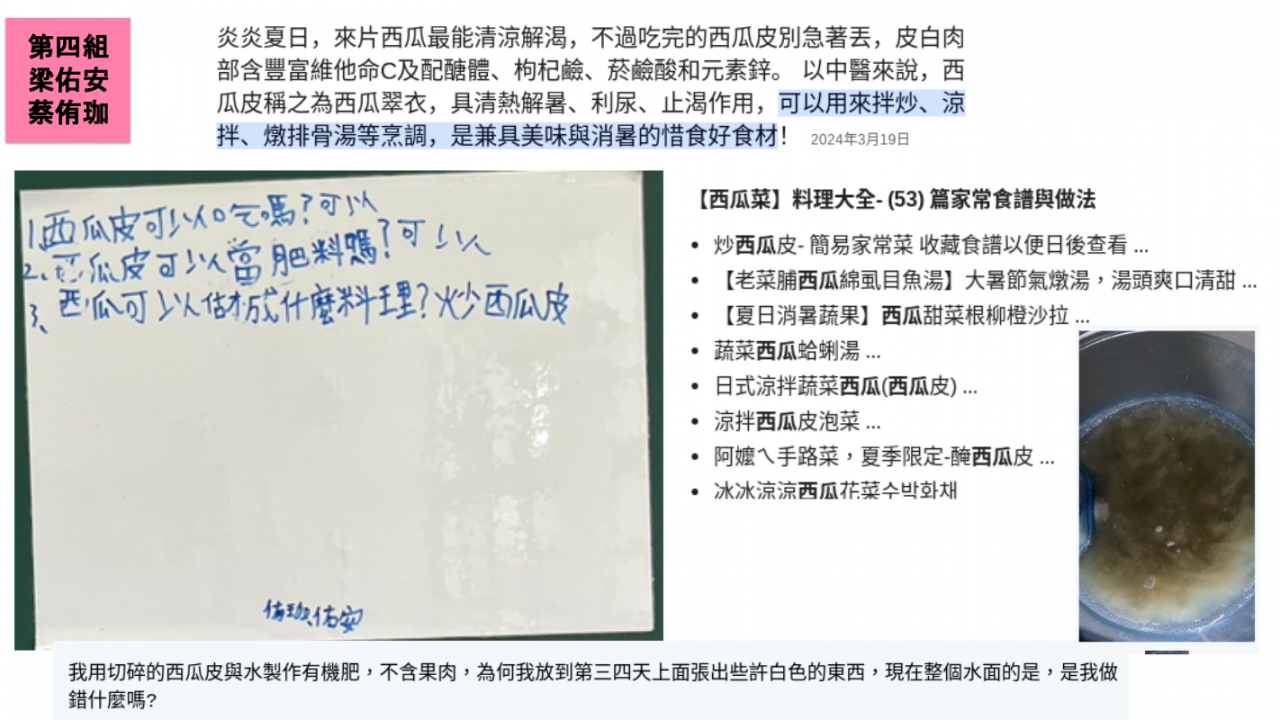 第四組
梁佑安
蔡侑珈
炎炎夏日，來片西瓜最能清涼解渴，不過吃完的西瓜皮別急著丟，皮白肉
部含豐富維他命C及配醣體、枸杞鹼、菸鹼酸和元素鋅。 以中醫來說，西
瓜皮稱之為西瓜翠衣，具清熱解暑、利尿、止渴作用，可以用來拌炒、涼
拌、燉排骨湯等烹調，是兼具美味與消暑的惜食好食材！ 2024年3月19日
1.西瓜皮可以吃嗎?可以
2.西瓜皮可以當肥料嗎?可以
3、西瓜可以做成什麼料理?炒西瓜皮
侑珈、佑安
【西瓜菜】料理大全- (53) 篇家常食譜與做法
• 炒西瓜皮- 簡易家常菜 收藏食譜以便日後查看 ...
• 【老菜脯西瓜綿虱目魚湯】大暑節氣燉湯，湯頭爽口清甜 ...
• 【夏日消暑蔬果】西瓜甜菜根柳橙沙拉 ...
• 蔬菜西瓜蛤蜊湯 ...
• 日式涼拌蔬菜西瓜(西瓜皮) ...
• 涼拌西瓜皮泡菜 ...
• 阿嬤ㄟ手路菜，夏季限定-醃西瓜皮 ...
• 冰冰涼涼西瓜花菜수박화채
我用切碎的西瓜皮與水製作有機肥，不含果肉，為何我放到第三四天上面張出些許白色的東西，現在整個水面的是，是我做
錯什麼嗎?